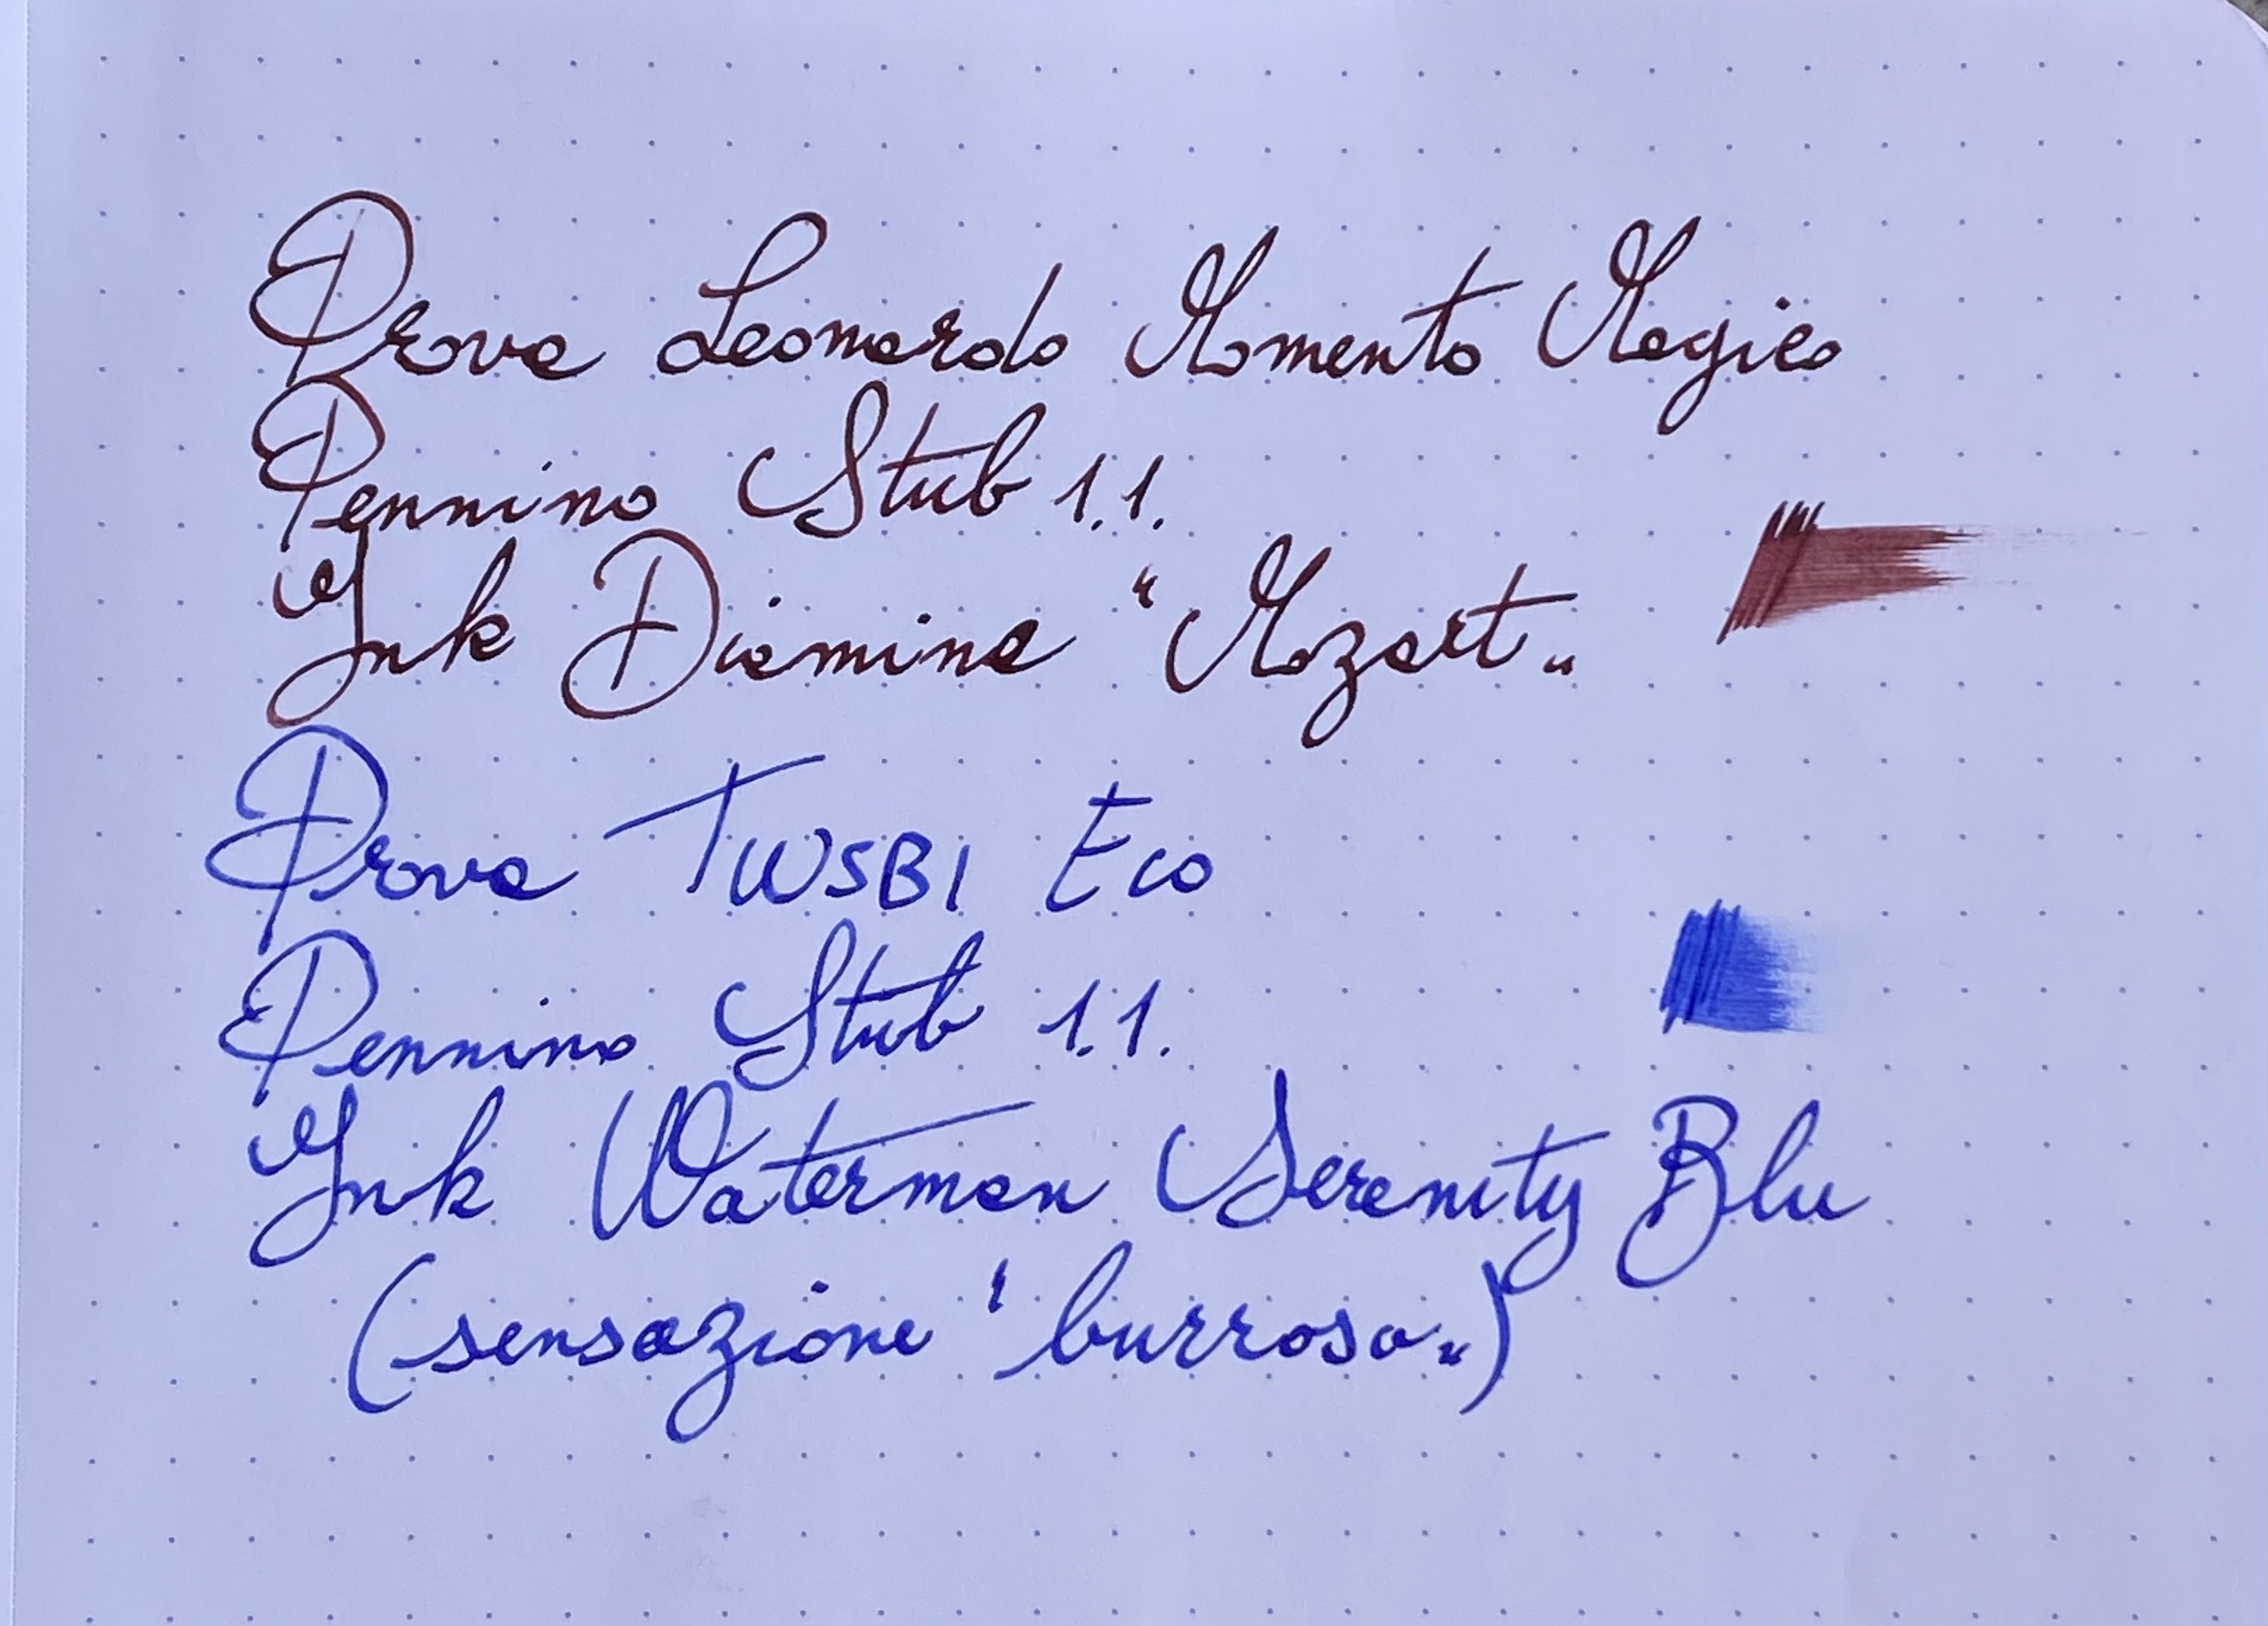 Prova Leonardo Momento Magico
Pennino Stub 1.1.
Ink Diamine "Mozart"
Prova TWSBI Eco
Pennino Stub 1.1.
Ink Waterman Serenity Blu
(sensazione "burrosa")